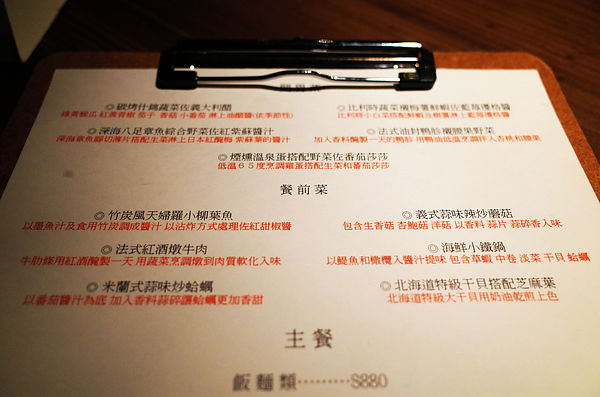 ◎碳烤什錦蔬菜佐義大利醋
綠黃櫛瓜 紅黃青椒 茄子 香菇 小番茄 淋上油醋醬(依季節性)
◎比利時蔬菜襯梅薯鮮蝦佐藍莓優格醬
比利時小白菜搭配鮮蝦及梅薯淋上藍莓優格醬
◎深海八足章魚綜合野菜佐紅紫蘇醬汁
深海章魚腳切薄片搭配生菜淋上日本紅醃梅 紫蘇葉的醬汁
◎法式油封鴨胗襯腰果野菜
加入香料醃製一天的鴨胗 用鴨油低溫烹調拌入杏桃和腰果
◎煙燻溫泉蛋搭配野菜佐番茄莎莎
低溫65度烹調雞蛋搭配生菜和番茄莎莎
餐前菜
◎竹炭風天婦羅小柳葉魚
以墨魚汁及食用竹炭調成醬汁 以沾炸方式處理佐紅甜椒醬
◎義式蒜味辣炒蘑菇
包含生香菇 杏鮑菇 洋菇 以香料 蒜片 蒜碎香入味
◎法式紅酒燉牛肉
牛肋條用紅酒醃製一天 用蔬菜烹調燉到肉質軟化入味
◎海鮮小鐵鍋
以鯷魚和橄欖入醬汁提味 包含草蝦 中卷 淡菜 干貝 蛤蠣
◎米蘭式蒜味炒蛤蠣
以番茄醬汁為底 加入香料蒜碎讓蛤蠣更加香甜
◎北海道特級干貝搭配芝麻葉
北海道特級大干貝用奶油乾煎上色
主餐
飯麵類·········$880